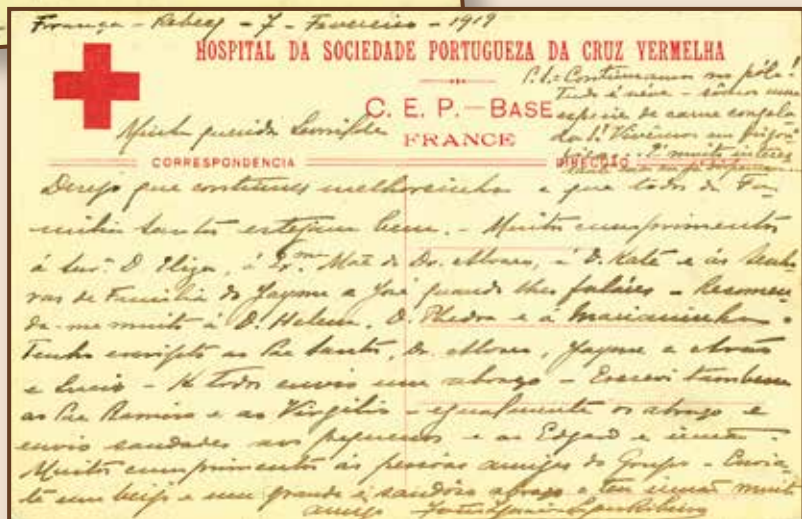 França - - 7 - Fevereiro - 1919
HOSPITAL DA SOCIEDADE PORTUGUEZA DA CRUZ VERMELHA
C. E. P. — BASE
FRANCE
P.S. = Continuamos no pólo!
Tudo é neve - somos uma
especie de carne congela
da! Vivemos um frigori
É muito interes
Minha querida
CORRESPONDENCIA
DIRECÇÃO
Desejo que continues melhorsinha e que todos da Fa-
milia Santos estejam bem. - Muitos cumprimentos
á Snrª. D. Eliza, á Exmª. Mãe do Dr. , á D. Kate e ás Senho
ras da Familia do Jayme e José quando lhes faláres - Recomen
da-me muito á D. Helena, D. e á Marianinha.
Tenho escripto ao Pae Santos, Dr. , Jayme e
e Lucio - A todos envio um abraço - Escrevi tambem
ao Pae Ramiro e ao Virgilio - egualmente os abraço e
envio saudades aos pequenos e ao Edgard e irmão.
Muitos cumprimentos ás pessoas amigas do Grupo - Envia-
te um beijo e um grande e saudôso abraço o teu irmão muito
amigo Ribeiro